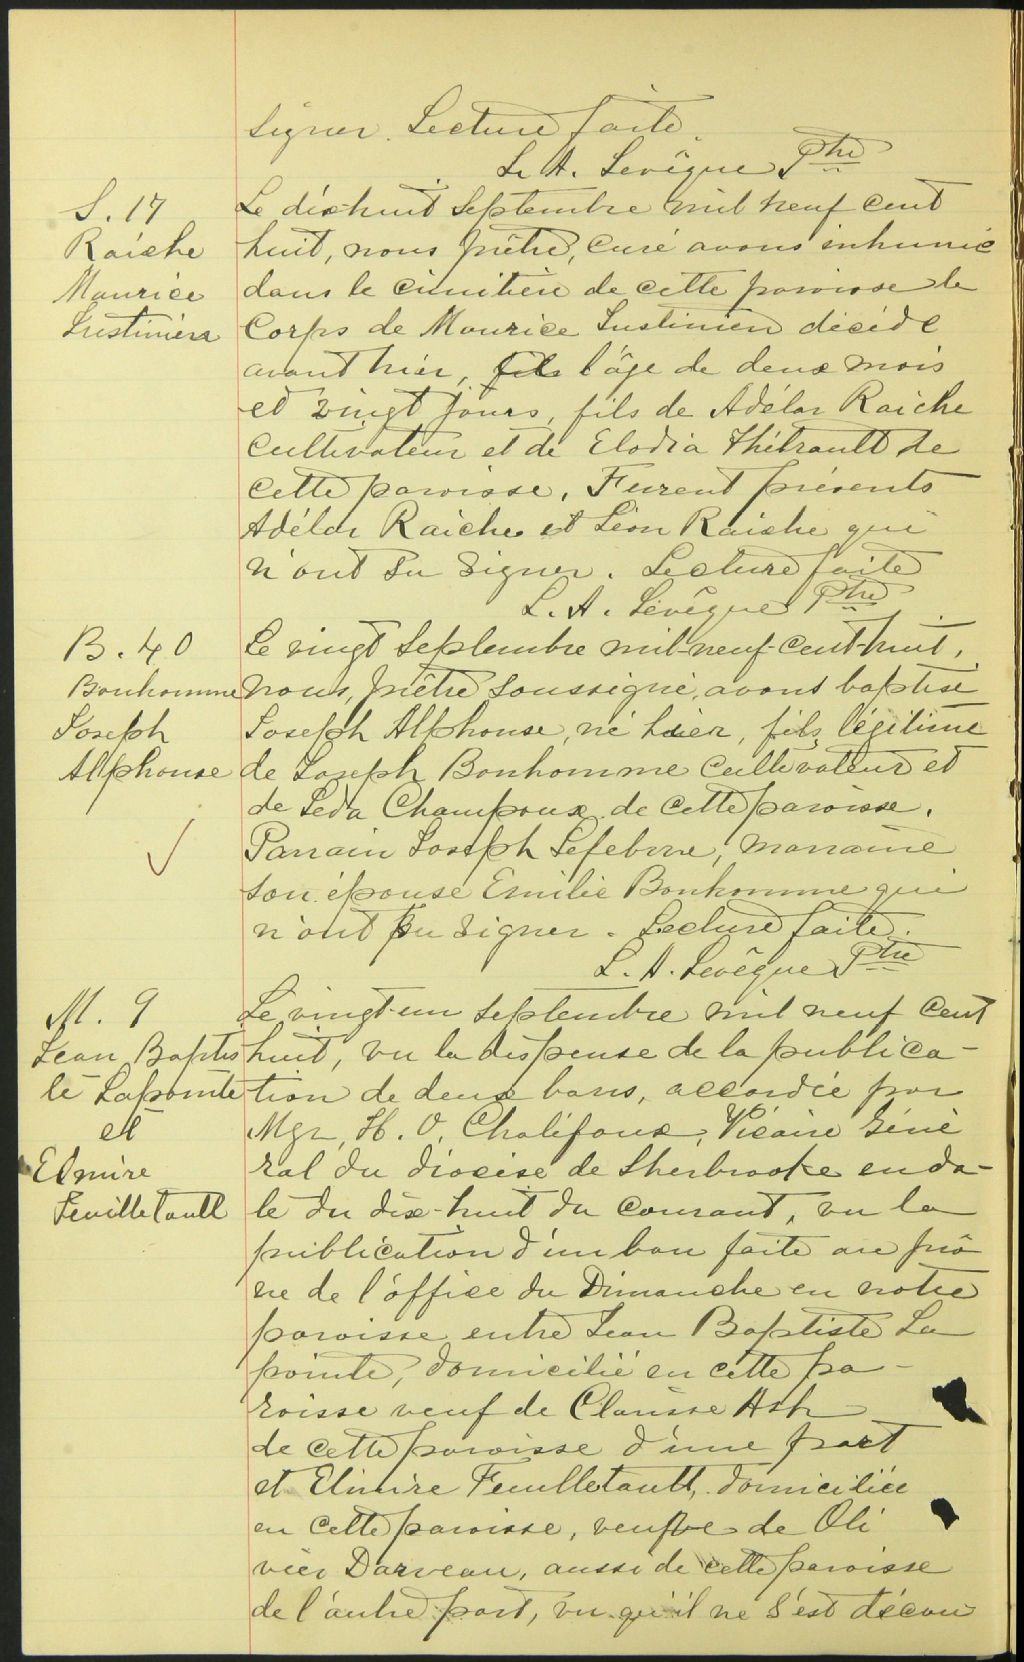 signer. Lecture faite.
L. A. Levêque Ptre
S. 17
Raiche
Maurice
Justinien
Le dix-huit Septembre mil neuf cent
huit, nous prêtre, curé avons inhumé
dans le cimitière de cette paroisse le
Corps de Maurice Justinien décédé
avant hier, à l'âge de deux mois
et vingt jours, fils de Adélar Raiche
cultivateur et de Elodia Thétrault de
cette paroisse. Furent présents
Adélar Raiche et Léon Raiche qui
n'ont su signer. Lecture faite
L. A. Levêque Ptre
B. 40
Bonhomme
Joseph
Alphonse
Le vingt Septembre mil-neuf-cent-huit,
nous, prêtre soussigné, avons baptisé
Joseph Alphonse, né hier, fils légitime
de Joseph Bonhomme Cultivateur et
de Léda Champoux de cette paroisse.
Parrain Joseph Lefebvre, marraine
son épouse Emilie Bonhomme qui
n'ont pu signer. Lecture faite.
L. A. Levêque Ptre
M. 9
Jean Baptis
te Lapointe
et
Elmire
Feuilletault
Le vingt-un Septembre mil neuf cent
huit, vu la dispense de la publica-
tion de deux bans, accordée par
Mgr, H. O. Chalifoux, Vicaire Géné
ral du diocèse de Sherbrooke en da-
te du dix-huit du courant, vu la
publication d'un ban faite au prô
ne de l'office du Dimanche en notre
paroisse entre Jean Baptiste La
pointe, domicilié en cette pa-
roisse veuf de Clarisse Ash
de cette paroisse d'une part
et Elmire Feuilletault, domiciliée
en cette paroisse, veuve de Oli
vier Darveau, aussi de cette paroisse
de l'autre part, vu qu'il ne s'est décou